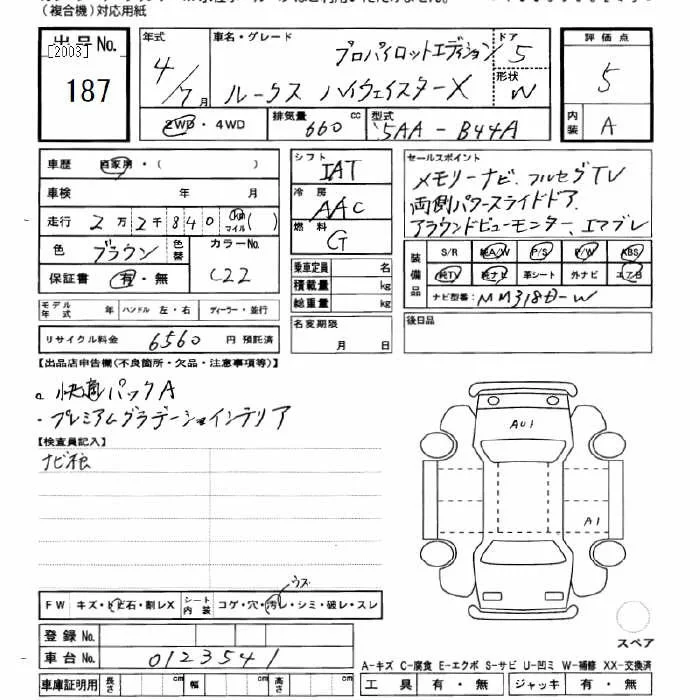 (複合機)対応用紙
出品No.
[2003]
187
年式
4/7月
車名・グレード
プロパイロットエディション
ルークス ハイウェイスターX
ドア
5
形状
W
評価点
5
内装
A
2WD・4WD
排気量
660 cc
型式
5AA-B44A
車歴 自家用・( )
車検 年 月
走行 2万2千840 km マイル( )
色 ブラウン 色替 カラーNo.
C22
保証書 有・無
モデル年式 年 ハンドル 左・右 ディーラー・並行
リサイクル料金 6560 円 預託済
シフト
IAT
冷房
AAC
燃料
G
乗車定員 名
積載量 kg
総重量 kg
名変期限
月 日
セールスポイント
メモリーナビ、フルセグTV
両側パワースライドドア、
アラウンドビューモニター、エマブレ
装備品
S/R 純A/W P/S P/W ABS
純TV 純ナビ 革シート 外ナビ エアB
ナビ型番: MM318D-W
後日品
【出品店申告欄(不良箇所・欠品・注意事項等)】
快適パックA
・プレミアムグラデーションインテリア
【検査員記入】
AU1
A1
ウス
FW キズ・トビ石・割レX シート内装 コゲ・穴・汚レ・シミ・破レ・スレ
登録No.
車台No. 0123541
車庫証明用 長さ cm 幅 cm 高さ cm
スペア
A-キズ C-腐食 E-エクボ S-サビ U-凹ミ W-補修 XX-交換済
工具 有・無 ジャッキ 有・無